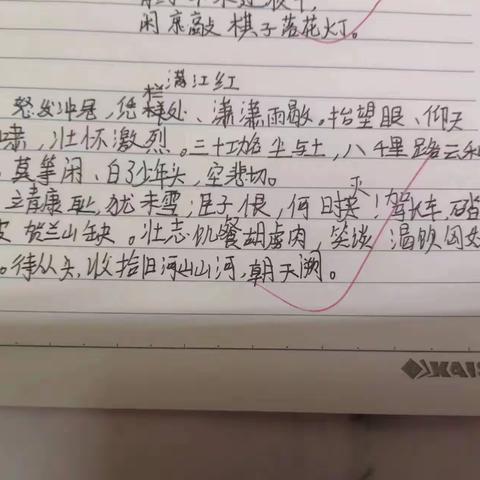 闲京敲棋子落花灯。
满江红
怒发冲冠,凭栏处、潇潇雨歇。抬望眼、仰天
啸,壮怀激烈。三十功名尘与土,八千里路云和
莫等闲、白了少年头,空悲切。
靖康耻,犹未雪;臣子恨,何时灭!驾长车,踏
贺兰山缺。壮志饥餐胡虏肉,笑谈渴饮匈奴
。待从头,收拾旧河山山河,朝天阙。
KAIS